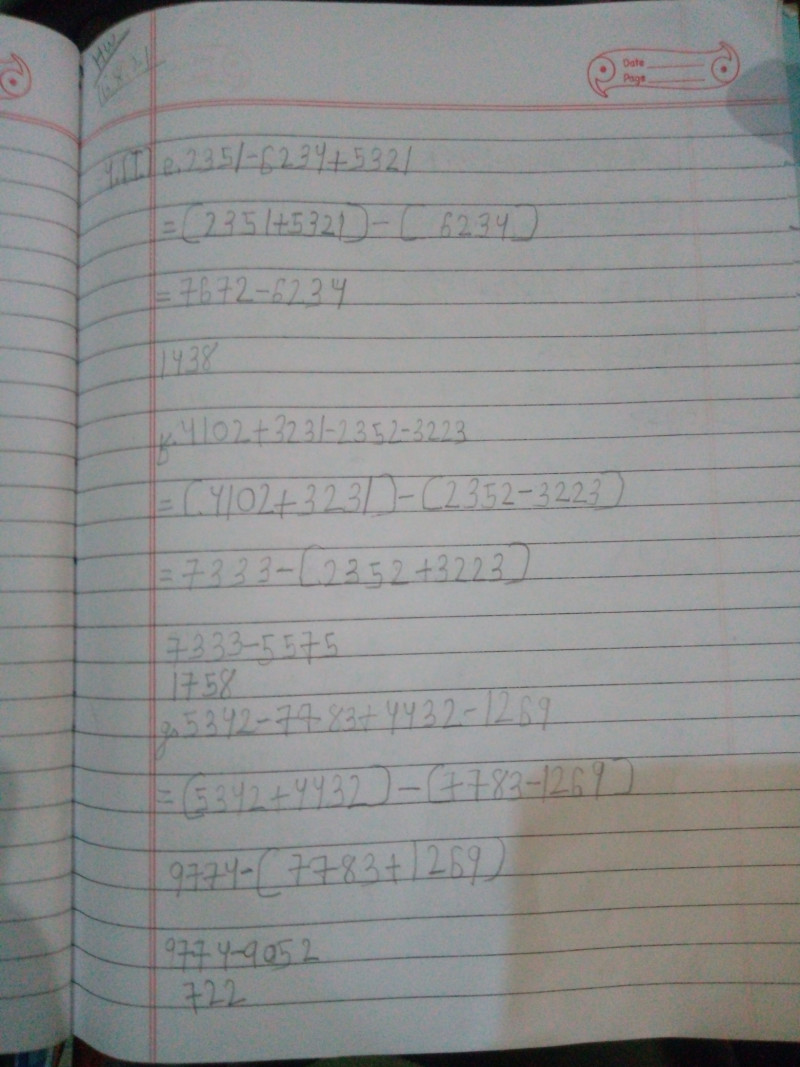 HW
16.8.21
Date
Page
4.[I] e.2351-6234+5321
=(2351+5321)-( 6234)
=7672-6234
1438
f.4102+3231-2352-3223
=(4102+3231)-(2352-3223)
=7333-(2352+3223)
7333-5575
1758
g.5342-7783+4432-1269
=(5342+4432)-(7783-1269)
9774-(7783+1269)
9774-9052
722